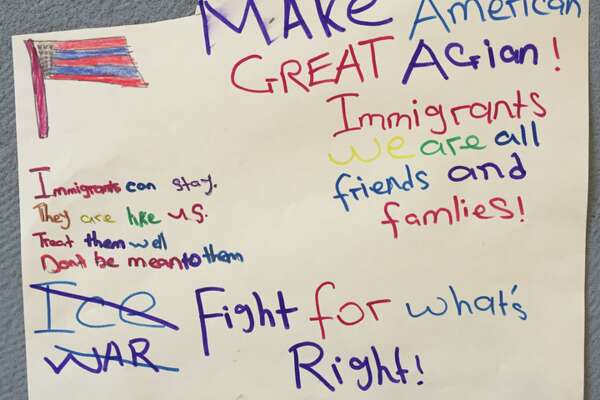 MAKE American
GREAT AGian!
Immigrants
we are all
friends and
famlies!
Immigrants can stay.
They are like U.S.
Treat them well
Don't be mean to them
Ice
WAR
Fight for what's
Right!